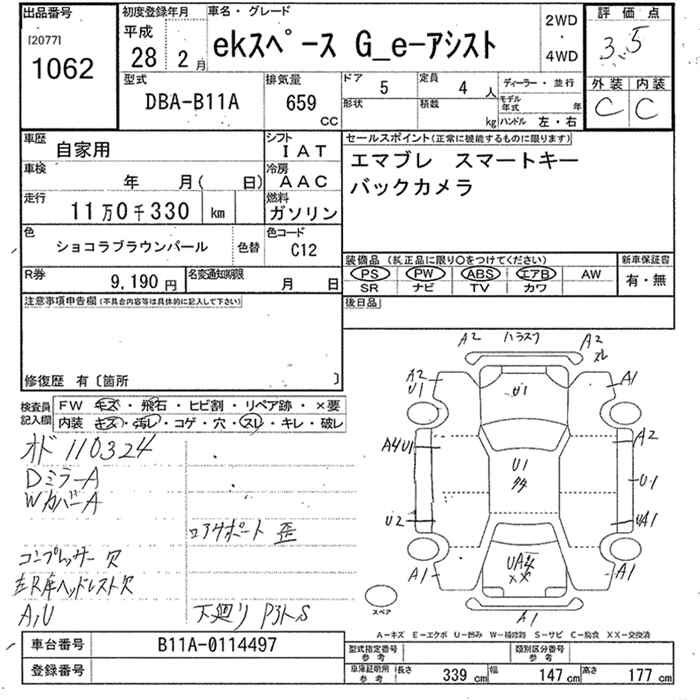 出品番号
[2077]
1062
初度登録年月
平成
28 2月
車名・グレード
ekスペース G_e-アシスト
2WD
・
4WD
評価点
3.5
型式
DBA-B11A
排気量
659
CC
ドア 5
定員 4 人
形状
積載 kg
ディーラー・並行
モデル年式 年
ハンドル 左・右
外装 内装
C C
車歴
自家用
シフト
IAT
車検
年 月( 日)
冷房
AAC
走行
11万0千330 km
燃料
ガソリン
色
ショコラブラウンパール
色替
色コード
C12
R券
9,190 円
名変通知期限
月 日
セールスポイント(正常に機能するものに限ります)
エマブレ スマートキー
バックカメラ
装備品(純正品に限り○をつけてください)
PS PW ABS エアB AW
SR ナビ TV カワ
新車保証書
有・無
後日品
注意事項申告欄(不具合内容等は具体的に記入して下さい)
修復歴 有〔箇所 〕
検査員
記入欄
FW キズ・飛石・ヒビ割・リペア跡・×要
内装 キズ・汚レ・コゲ・穴・スレ・キレ・破レ
オド 110324
Dミラー A
Wカバー A
コアサポート 歪
コンプレッサー欠
左R席ヘッドレスト欠
A,U
下廻り P3ト,S
A2 ハラスフ A2
スレ
A2
U1
U1
A1
A4U1
A2
U1
U1
U2
UA1
UA4
××
A1
A1
A1
スペア
A-キズ E-エクボ U-凹み W-補修跡 S-サビ C-腐食 XX-交換済
車台番号
B11A-0114497
登録番号
型式指定番号
参考
類別区分番号
参考
車庫証明用
参考
長さ 339 cm 幅 147 cm 高さ 177 cm